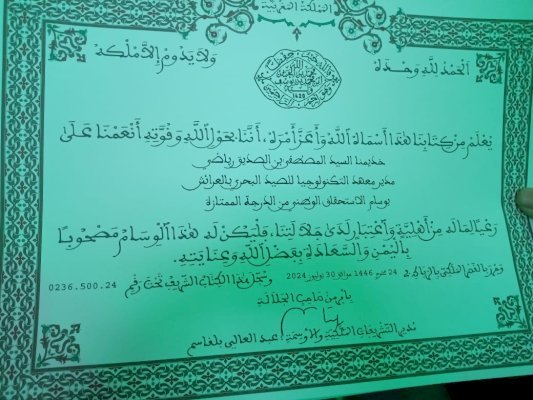 المملكة المغربية
الحمد لله وحده
ولا يدوم إلا ملكه
يعلم من كتابنا هذا أسماه الله وأعز أمره، أننا بحول الله وقوته أنعمنا على
خديمنا السيد المصطفى بن الصديق رياضي
مدير معهد التكنولوجيا للصيد البحري بالعرائش
بوسام الاستحقاق الوطني من الدرجة الممتازة
رعيا لما له من أهلية واعتبار لدى جلالتنا، فليكن له هذا الوسام مصحوبا
باليمن والسعادة بفضل الله وعنايته.
وحرر بالقصر الملكي بالرباط في 24 محرم 1446 موافق 30 يوليوز 2024 وسجل هذا الكتاب الشريف تحت رقم 0236.500.24
بأمر من صاحب الجلالة
مدير التشريفات الملكية والأوسمة: عبد العالي بلقاسم